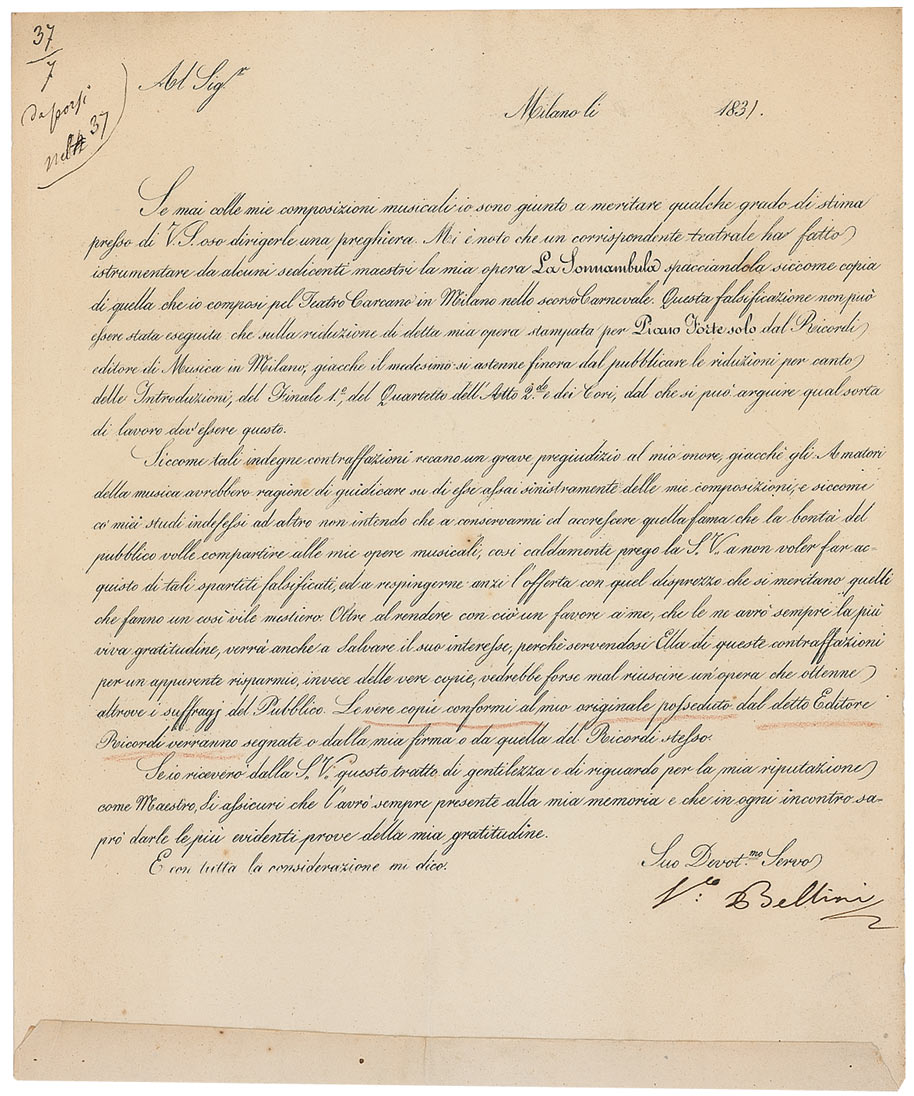 37
7
da porsi
nel 37
Al Sig.r
Milano li 1831.
Se mai colle mie composizioni musicali io sono giunto a meritare qualche grado di stima
presso di V. S. oso dirigerle una preghiera. Mi è noto che un corrispondente teatrale ha fatto
istrumentare da alcuni sedicenti maestri la mia opera La Sonnambula spacciandola siccome copia
di quella che io composi pel Teatro Carcano in Milano nello scorso Carnevale. Questa falsificazione non può
essere stata eseguita che sulla reduzione di detta mia opera stampata per Piano Forte solo dal Ricordi
editore di Musica in Milano, giacchè il medesimo si astenne finora dal pubblicare le riduzioni per canto
delle Introduzioni, del Finale 1.o, del Quartetto dell'Atto 2.do e dei Cori, dal che si può arguire qual sorta
di lavoro dev'essere questo.
Siccome tali indegne contraffazioni recano un grave pregiudizio al mio onore, giacchè gli Amatori
della musica avrebbero ragione di guidicare su di esse assai sinistramente delle mie composizioni, e siccome
co' miei studi indefessi ad altro non intendo che a conservarmi ed accrescere quella fama che la bontà del
pubblico volle compartire alle mie opere musicali, così caldamente prego la S. V. a non voler far ac-
quisto di tali spartiti falsificati, ed a respingerne anzi l'offerta con quel disprezzo che si meritano quelli
che fanno un così vile mestiero. Oltre al rendere con ciò un favore a me, che le ne avrò sempre la più
viva gratitudine, verrà anche a salvare il suo interesse, perchè servendosi Ella di queste contraffazioni
per un apparente risparmio, invece delle vere copie, vedrebbe forse mal riuscire un'opera che ottenne
altrove i suffragj del Pubblico. Le vere copie conformi al mio originale posseduto dal detto Editore
Ricordi verranno segnate o dalla mia firma o da quella del Ricordi stesso.
Se io riceverò dalla S. V. questo tratto di gentilezza e di riguardo per la mia riputazione
come Maestro, Si assicuri che l'avrò sempre presente alla mia memoria e che in ogni incontro sa-
prò darle le più evidenti prove della mia gratitudine.
E con tutta la considerazione mi dico.
Suo Devot.mo Servo
V.o Bellini